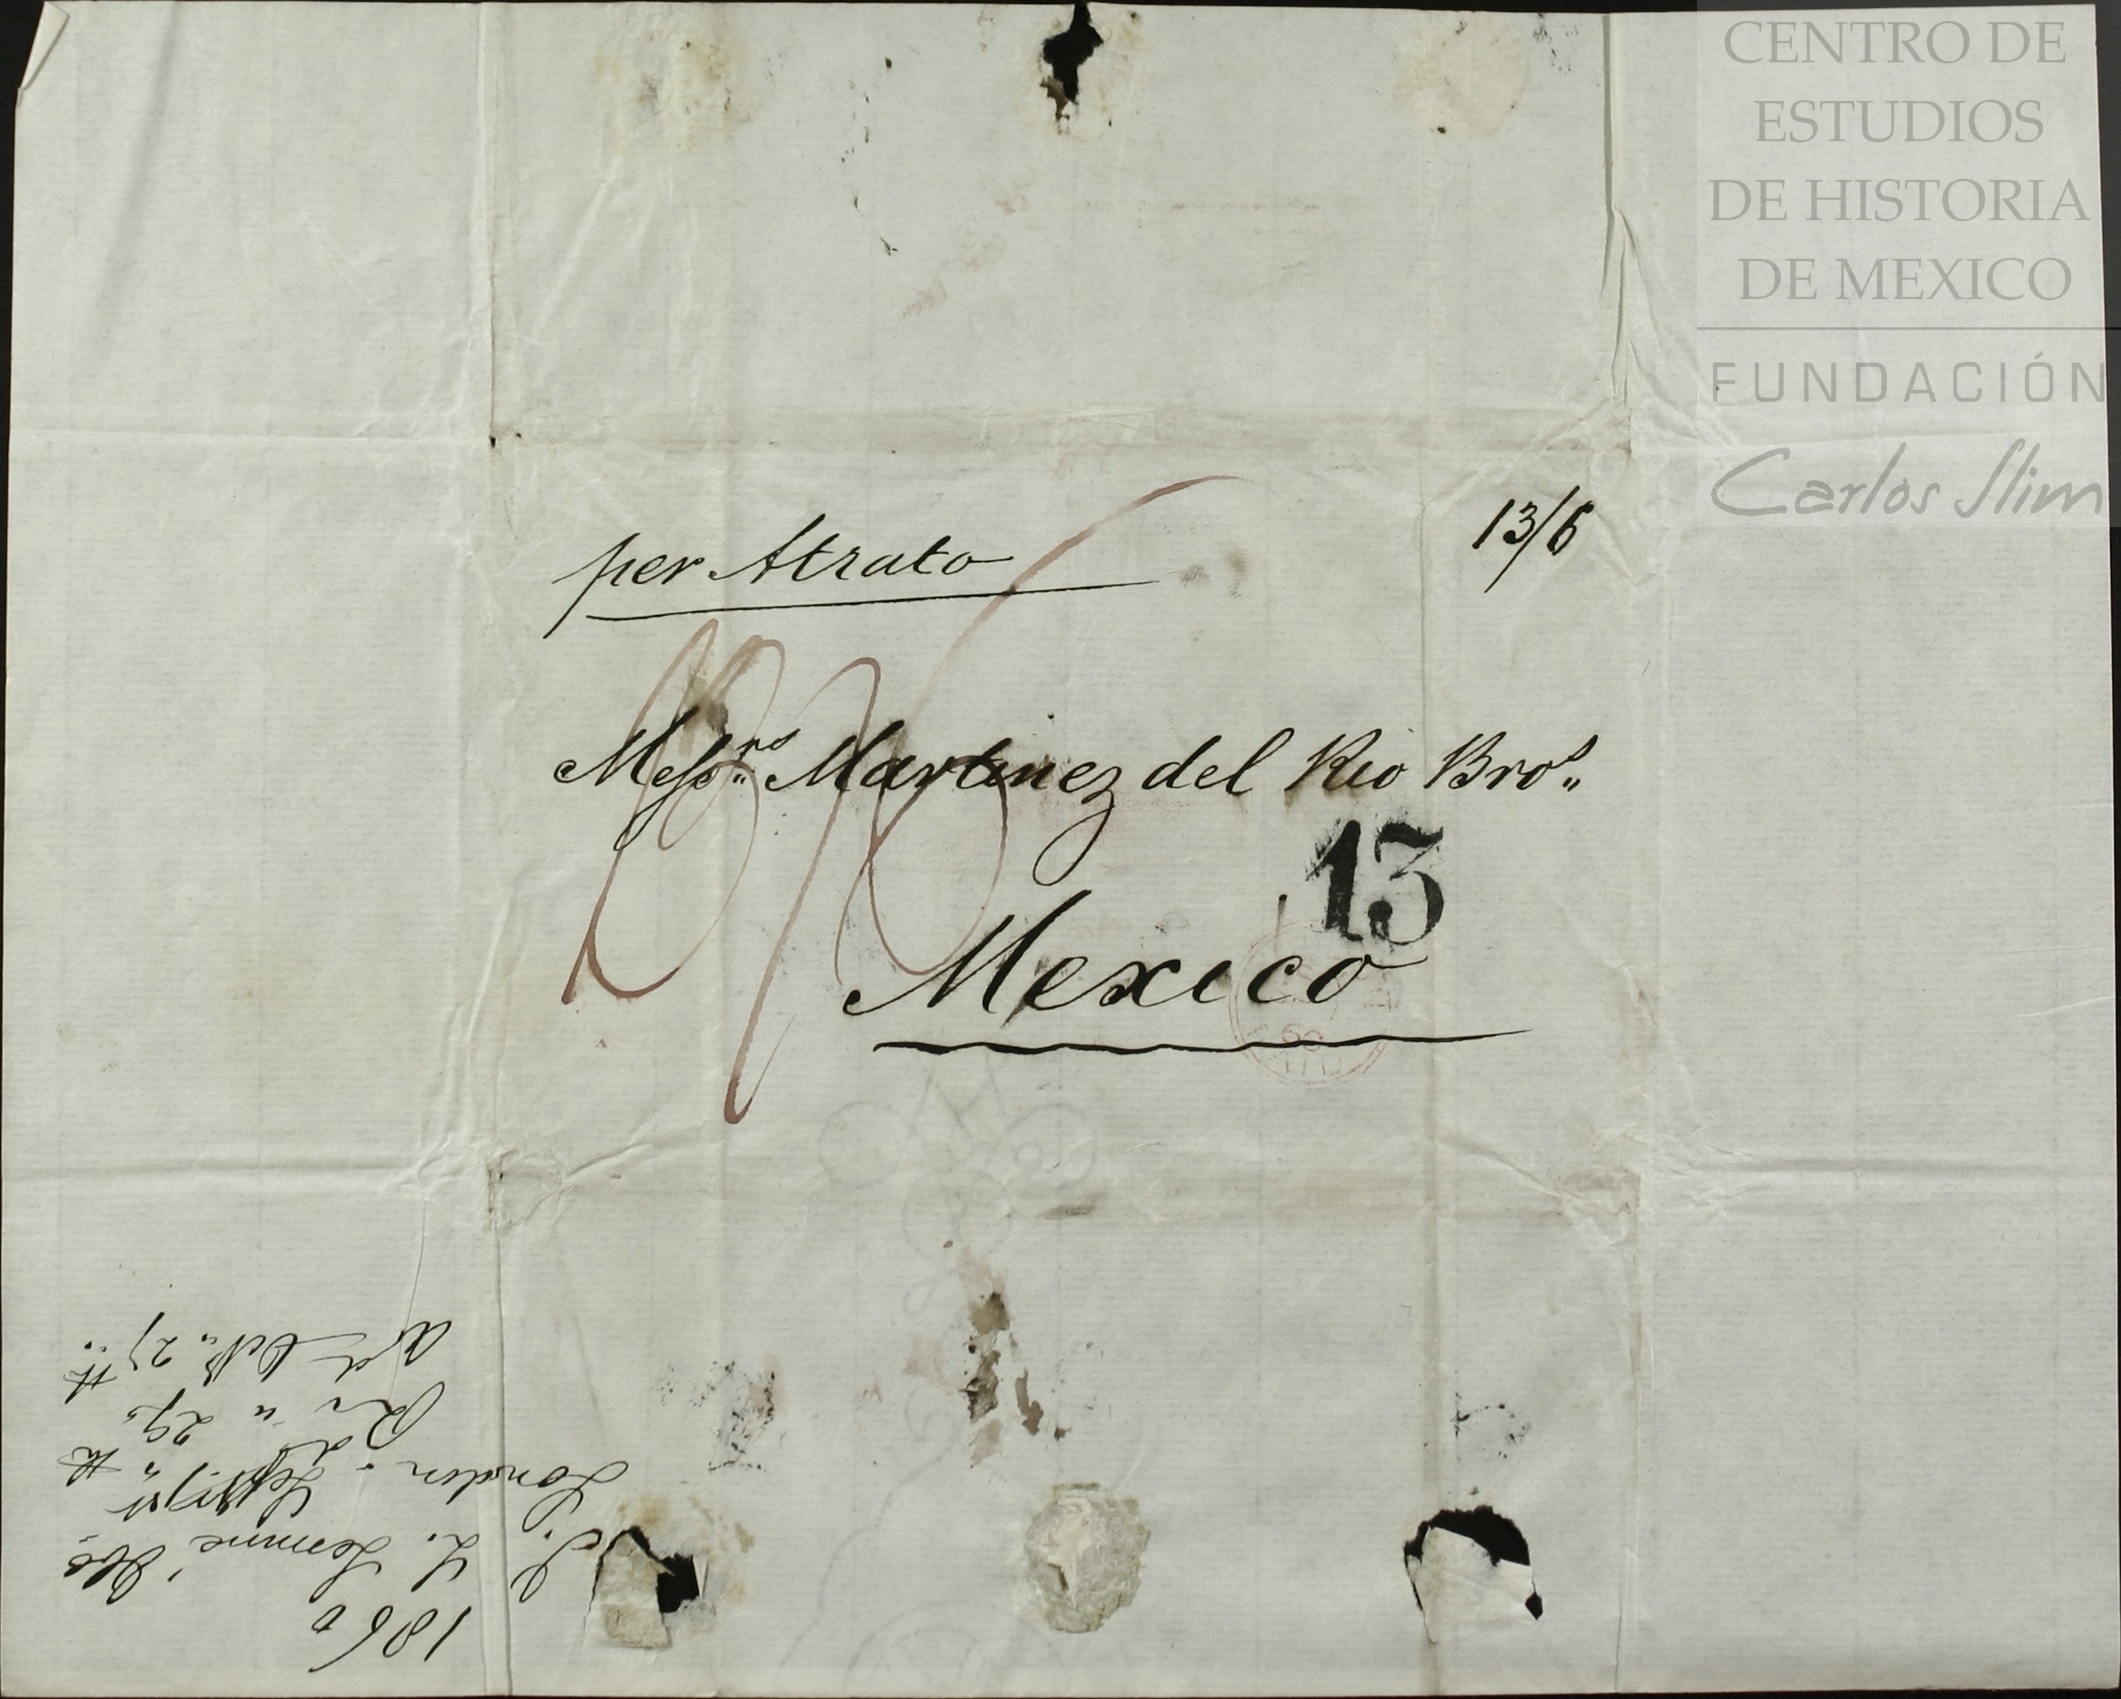 CENTRO DE
ESTUDIOS
DE HISTORIA
DE MEXICO
FUNDACIÓN
Carlos Slim
per Atrato
13/6
Messrs Martinez del Rio Bros
13
Mexico
60
1860
London
29th
Ad Oct. 27th